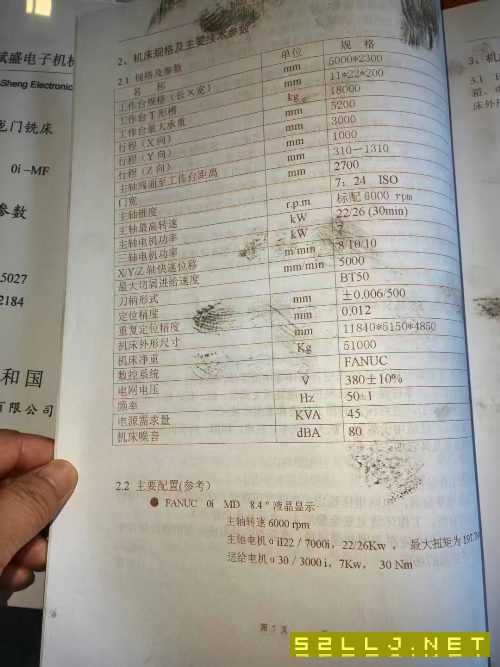 斌盛电子机械
Sheng Electronic
龙门铣床
0i-MF
参数
5027
2184
和国
有限公司
2、机床规格及主要技术参数
2.1 规格及参数
名 称 单位 规 格
工作台规格（长×宽） mm 5000*2300
工作台T形槽 mm 11*22*200
工作台最大承重 kg 18000
行程（X向） mm 5200
行程（Y向） mm 3000
行程（Z向） mm 1000
主轴端面至工作台距离 mm 310-1310
门宽 mm 2700
主轴锥度 7：24 ISO
主轴最高转速 r.p.m 标配 6000 rpm
主轴电机功率 kW 22/26 (30min)
三轴电机功率 kW 7
X/Y/Z 轴快速位移 m/min 8/10/10
最大切屑进给速度 mm/min 5000
刀柄形式 BT50
定位精度 mm ±0.006/500
重复定位精度 mm 0.012
机床外形尺寸 mm 11840*5150*4850
机床净重 Kg 51000
数控系统 FANUC
电网电压 V 380±10%
频率 Hz 50±1
电源需求量 KVA 45
机床噪音 dBA 80
2.2 主要配置(参考)
● FANUC 0i MD 8.4"液晶显示
主轴转速 6000 rpm
主轴电机αiI22 / 7000i，22/26Kw ， 最大扭矩为 197.7
送给电机α30 / 3000i，7Kw， 30 Nm
第 7 页
3、机
3.1
箱、电
床外
52LLJ.NET